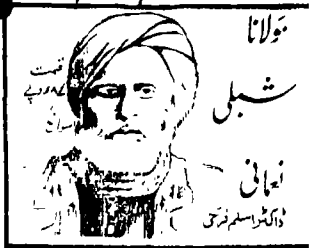 مولانا
شبلی
نعمانی
ڈاکٹر اسلم فرخی
قیمت